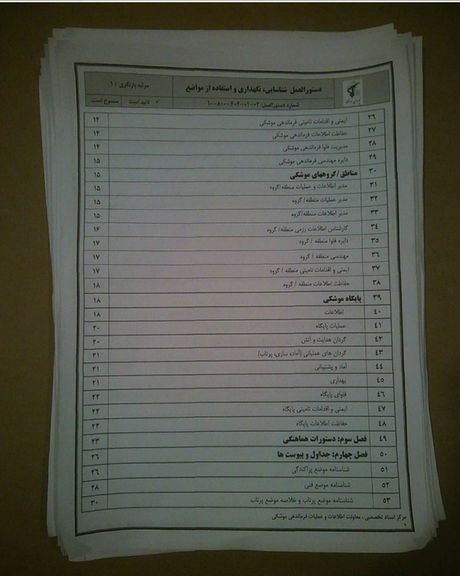 دستورالعمل شناسایی، نگهداری و استفاده از مواضع
مرتبه بازنگری : ۱
شماره دستورالعمل:
تائید است
منسوخ است
۲۶ ایمنی و اقدامات تامینی فرماندهی موشکی ۱۴
۲۷ حفاظت اطلاعات فرماندهی موشکی ۱۴
۲۸ مدیریت فاوا فرماندهی موشکی ۱۴
۲۹ دایره مهندسی فرماندهی موشکی ۱۵
۳۰ مناطق/گروههای موشکی ۱۵
۳۱ مدیر اطلاعات و عملیات منطقه/گروه ۱۵
۳۲ مدیر عملیات منطقه/ گروه ۱۵
۳۳ مدیر اطلاعات منطقه/گروه ۱۵
۳۴ کارشناس اطلاعات رزمی منطقه/ گروه ۱۶
۳۵ دایره فاوا منطقه / گروه ۱۷
۳۶ مهندسی منطقه / گروه ۱۷
۳۷ ایمنی و اقدامات تامینی منطقه / گروه ۱۷
۳۸ حفاظت اطلاعات منطقه / گروه ۱۸
۳۹ پایگاه موشکی ۱۸
۴۰ اطلاعات ۱۸
۴۱ عملیات پایگاه ۲۰
۴۲ گردان هدایت و آتش ۲۰
۴۳ گردان های عملیاتی (آماده سازی، پرتاب) ۲۱
۴۴ آماد و پشتیبانی ۲۱
۴۵ بهداری ۲۱
۴۶ فاوای پایگاه ۲۲
۴۷ ایمنی و اقدامات تامینی پایگاه ۲۲
۴۸ حفاظت اطلاعات پایگاه ۲۲
۴۹ فصل سوم: دستورات هماهنگی ۲۳
۵۰ فصل چهارم: جداول و پیوست ها ۲۶
۵۱ شناسنامه موضع پراکندگی ۲۶
۵۲ شناسنامه موضع فنی ۲۸
۵۳ شناسنامه موضع پرتاب و خلاصه موضع پرتاب ۳۰
مرکز اسناد تخصصی ، معاونت اطلاعات و عملیات فرماندهی موشکی